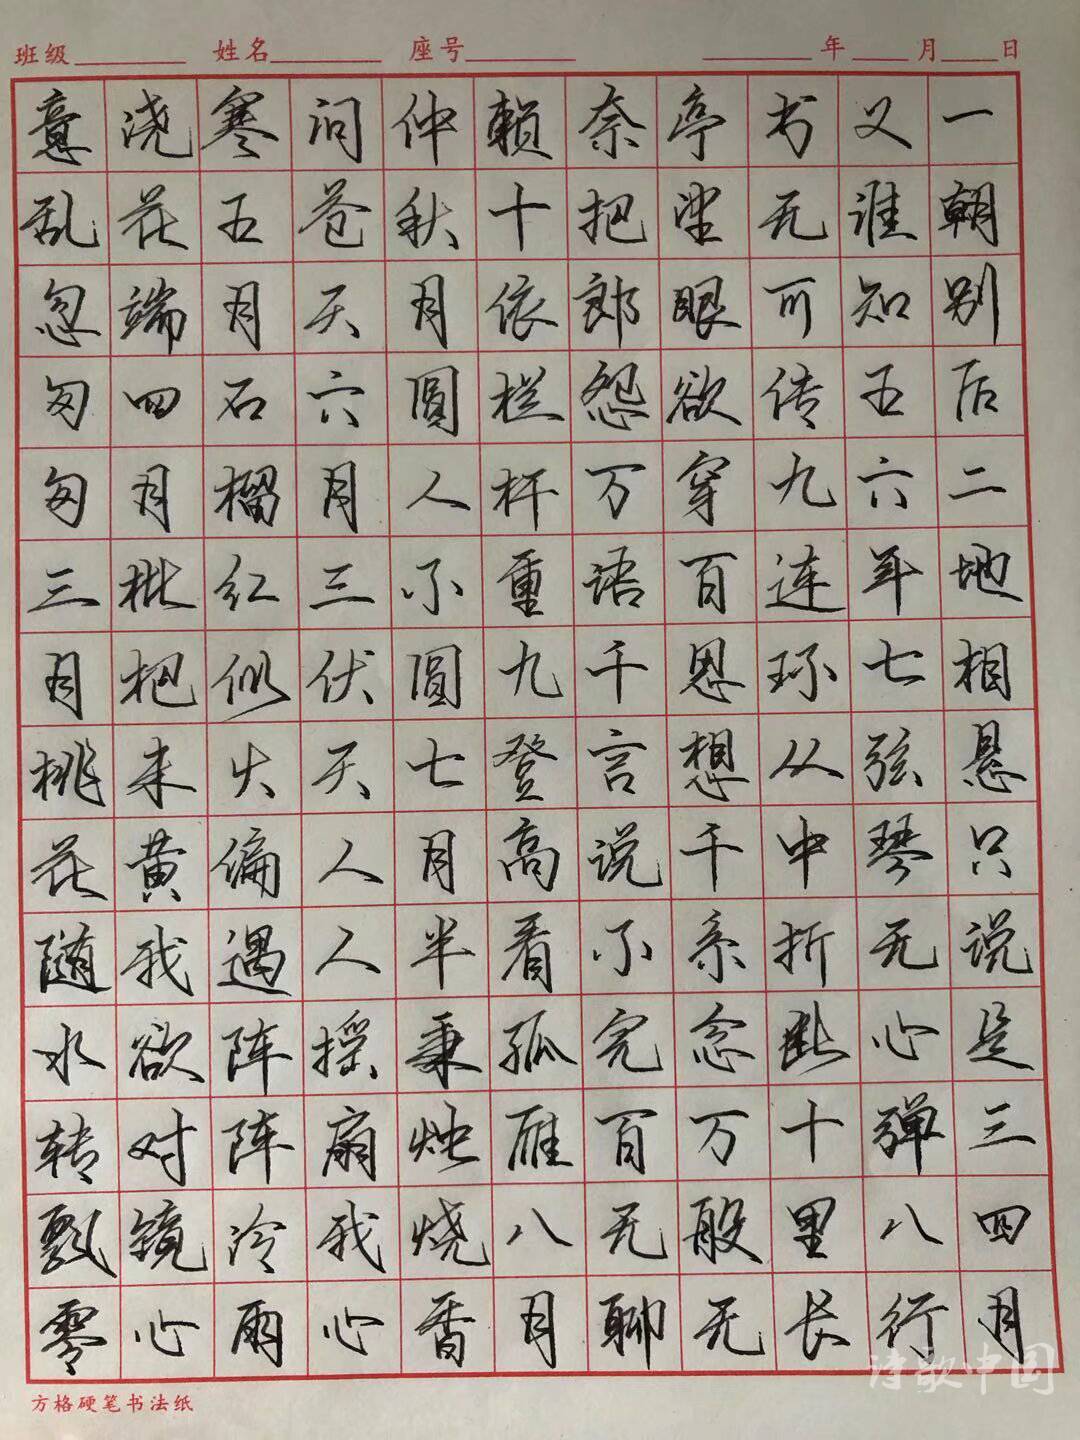 班级 姓名 座号 年 月 日
一朝别后二地相悬只说是三四月
又谁知五六年七弦琴无心弹八行
书无可传九连环从中折断十里长
亭望眼欲穿百思想千系念万般无
奈把郎怨万语千言说不完百无聊
赖十依栏杆重九登高看孤雁八月
仲秋月圆人不圆七月半秉烛烧香
问苍天六月三伏天人人摇扇我心
寒五月石榴红似火偏遇阵阵冷雨
浇花端四月枇杷未黄我欲对镜心
意乱忽匆匆三月桃花随水转飘零
方格硬笔书法纸
诗歌中国